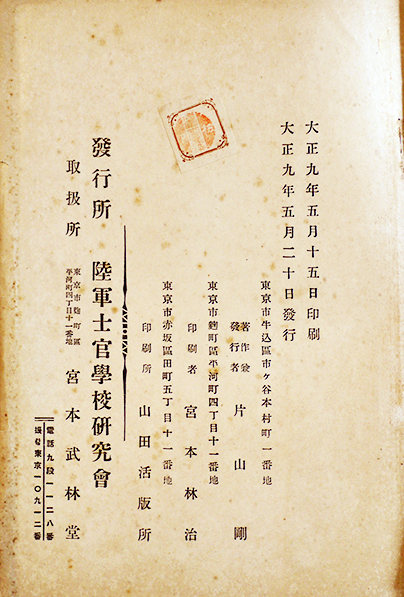 大正九年五月十五日印刷
大正九年五月二十日發行
東京市牛込區市ヶ谷本村町一番地
著作兼
發行者 片山剛
東京市麴町區平河町四丁目十一番地
印刷者 宮本林治
東京市赤坂區田町五丁目十一番地
印刷所 山田活版所
發行所 陸軍士官學校研究會
取扱所
東京市麴町區
平河町四丁目十一番地
宮本武林堂
電話九段一一二八番
振替東京一〇九一二番